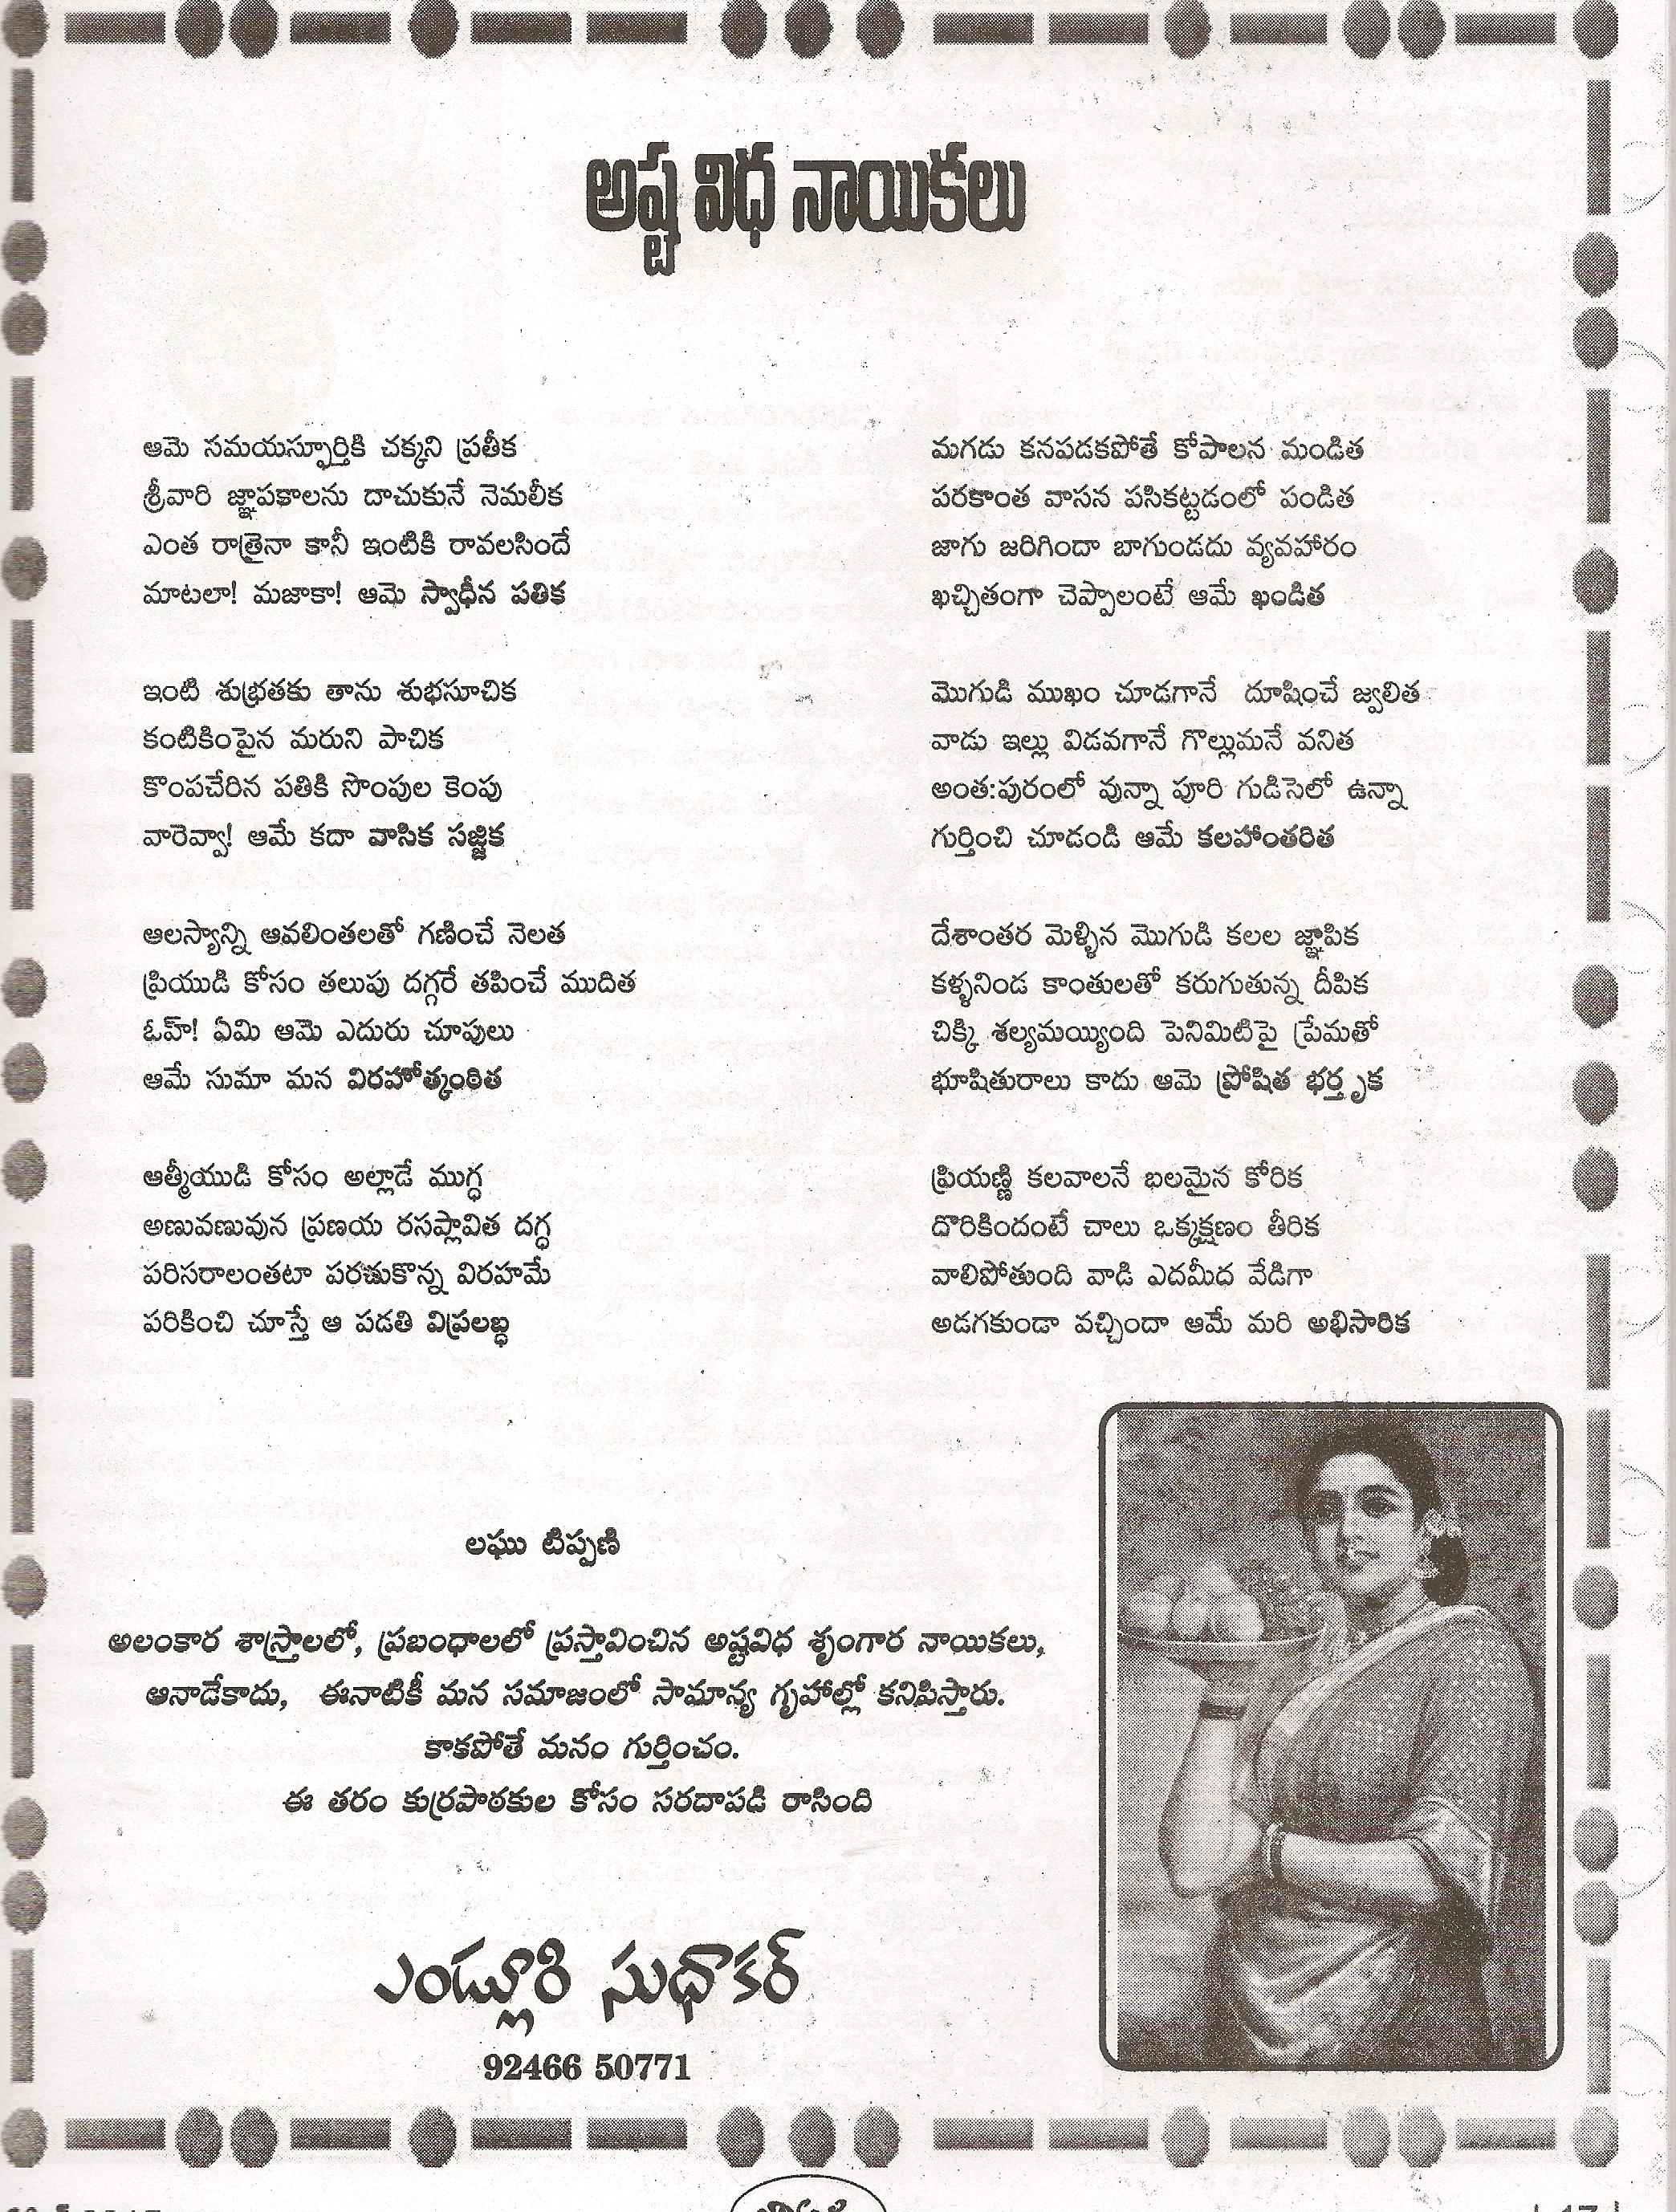 అష్ట విధ నాయికలు
ఆమె సమయస్ఫూర్తికి చక్కని ప్రతీక
శ్రీవారి జ్ఞాపకాలను దాచుకునే నెమలీక
ఎంత రాత్రైనా కానీ ఇంటికి రావలసిందే
మాటలా! మజాకా! ఆమె స్వాధీన పతిక
ఇంటి శుభ్రతకు తాను శుభసూచిక
కంటికింపైన మరుని పాచిక
కొంపచేరిన పతికి సొంపుల కెంపు
వారెవ్వా! ఆమే కదా వాసిక సజ్జిక
ఆలస్యాన్ని ఆవలింతలతో గణించే నెలత
ప్రియుడి కోసం తలుపు దగ్గరే తపించే ముదిత
ఓహ్! ఏమి ఆమె ఎదురు చూపులు
ఆమే సుమా మన విరహోత్కంఠిత
ఆత్మీయుడి కోసం అల్లాడే ముగ్ధ
అణువణువున ప్రణయ రసప్లావిత దగ్ధ
పరిసరాలంతటా పరచుకొన్న విరహమే
పరికించి చూస్తే ఆ పడతి విప్రలబ్ధ
మగడు కనపడకపోతే కోపాలన మండిత
పరకాంత వాసన పసికట్టడంలో పండిత
జాగు జరిగిందా బాగుండదు వ్యవహారం
ఖచ్చితంగా చెప్పాలంటే ఆమే ఖండిత
మొగుడి ముఖం చూడగానే దూషించే జ్వలిత
వాడు ఇల్లు విడవగానే గొల్లుమనే వనిత
అంత:పురంలో వున్నా పూరి గుడిసెలో ఉన్నా
గుర్తించి చూడండి ఆమే కలహాంతరిత
దేశాంతర మెళ్ళిన మొగుడి కలల జ్ఞాపిక
కళ్ళనిండ కాంతులతో కరుగుతున్న దీపిక
చిక్కి శల్యమయ్యింది పెనిమిటిపై ప్రేమతో
భూషితురాలు కాదు ఆమె ప్రోషిత భర్తృక
ప్రియణ్ణి కలవాలనే బలమైన కోరిక
దొరికిందంటే చాలు ఒక్కక్షణం తీరిక
వాలిపోతుంది వాడి ఎదమీద వేడిగా
అడగకుండా వచ్చిందా ఆమే మరి అభిసారిక
లఘు టిప్పణి
అలంకార శాస్త్రాలలో, ప్రబంధాలలో ప్రస్తావించిన అష్టవిధ శృంగార నాయికలు,
ఆనాడేకాదు, ఈనాటికీ మన సమాజంలో సామాన్య గృహాల్లో కనిపిస్తారు.
కాకపోతే మనం గుర్తించం.
ఈ తరం కుర్రపాఠకుల కోసం సరదాపడి రాసింది
ఎండ్లూరి సుధాకర్
92466 50771